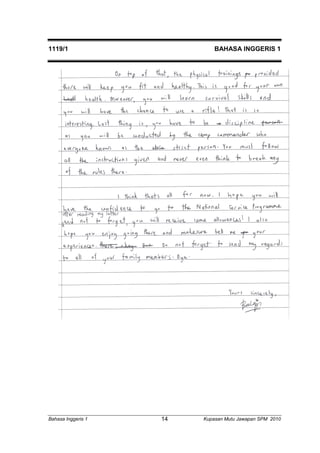 1119/1 BAHASA INGGERIS 1
On top of that, the physical trainings provided
there will keep you fit and healthy. This is good for your
health. Moreover, you will learn survival skills and
you will have the chance to use a rifle! That is so
interesting. Last thing is, you have to be discipline
as you will be conducted by the camp commander who
everyone knows as the strict person. You must follow
all the instructions given and never even think to break any
of the rules there.
I think that's all for now. I hope you will
have the confidence to go to the National Service Programme
after reading my letter
and not to forget, you will receive some allowances! I also
hope you enjoy going there and make sure tell me your
experiences. Do not forget to send my regards
to all of your family members. Bye.
Yours sincerely,
Bahasa Inggeris 1 14 Kupasan Mutu Jawapan SPM 2010